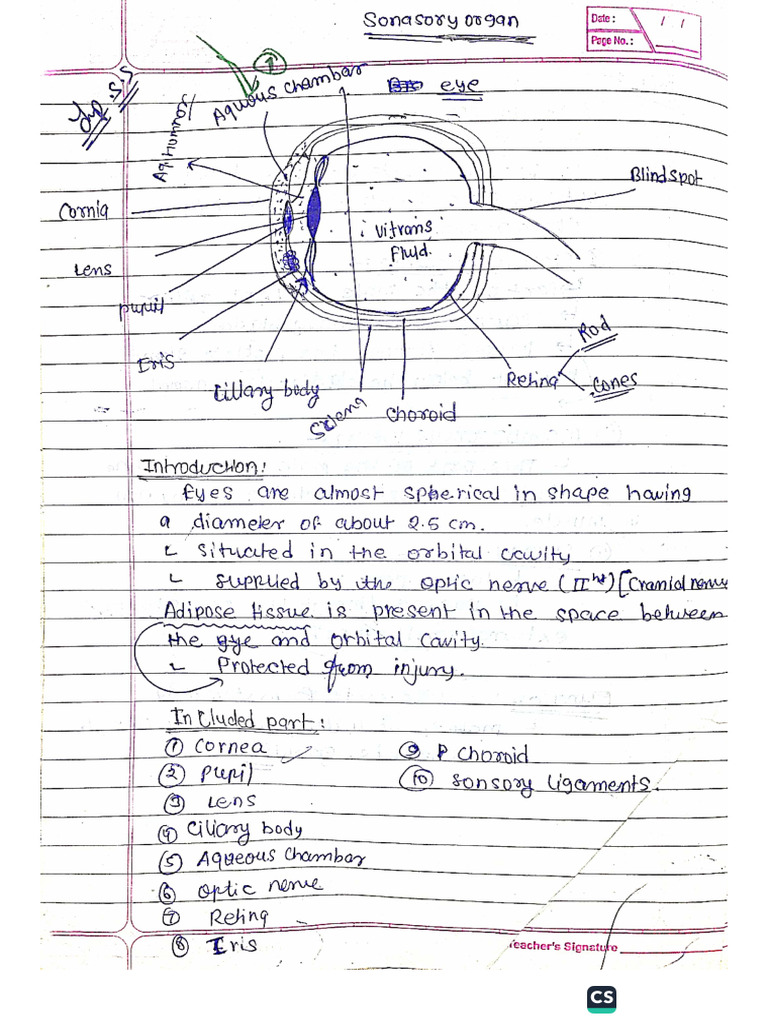 Sonasory organ
Date : / /
Page No. :
Imp S.S
1
Aquous chambar
eye
Aq. Humnor
Blind spot
Cornia
Vitrans
Fluid.
Lens
Pupil
Rod
Eris
Retina
Cones
Cillary body
Sclena
Choroid
Introduction:
Eyes are almost spherical in shape having
a diameter of about 2.5 cm.
situated in the orbital cavity
supplied by the optic nerve (II nd) [Cranial nerve
Adipose tissue is present in the space between
the eye and orbital cavity.
Protected from injury.
Included part:
① Cornea
⑨ Choroid
② Pupil
⑩ Sonsory ligaments.
③ Lens
④ Ciliary body
⑤ Aqueous chambar
⑥ Optic nerve
⑦ Retina
⑧ Iris
Teacher's Signature
CS